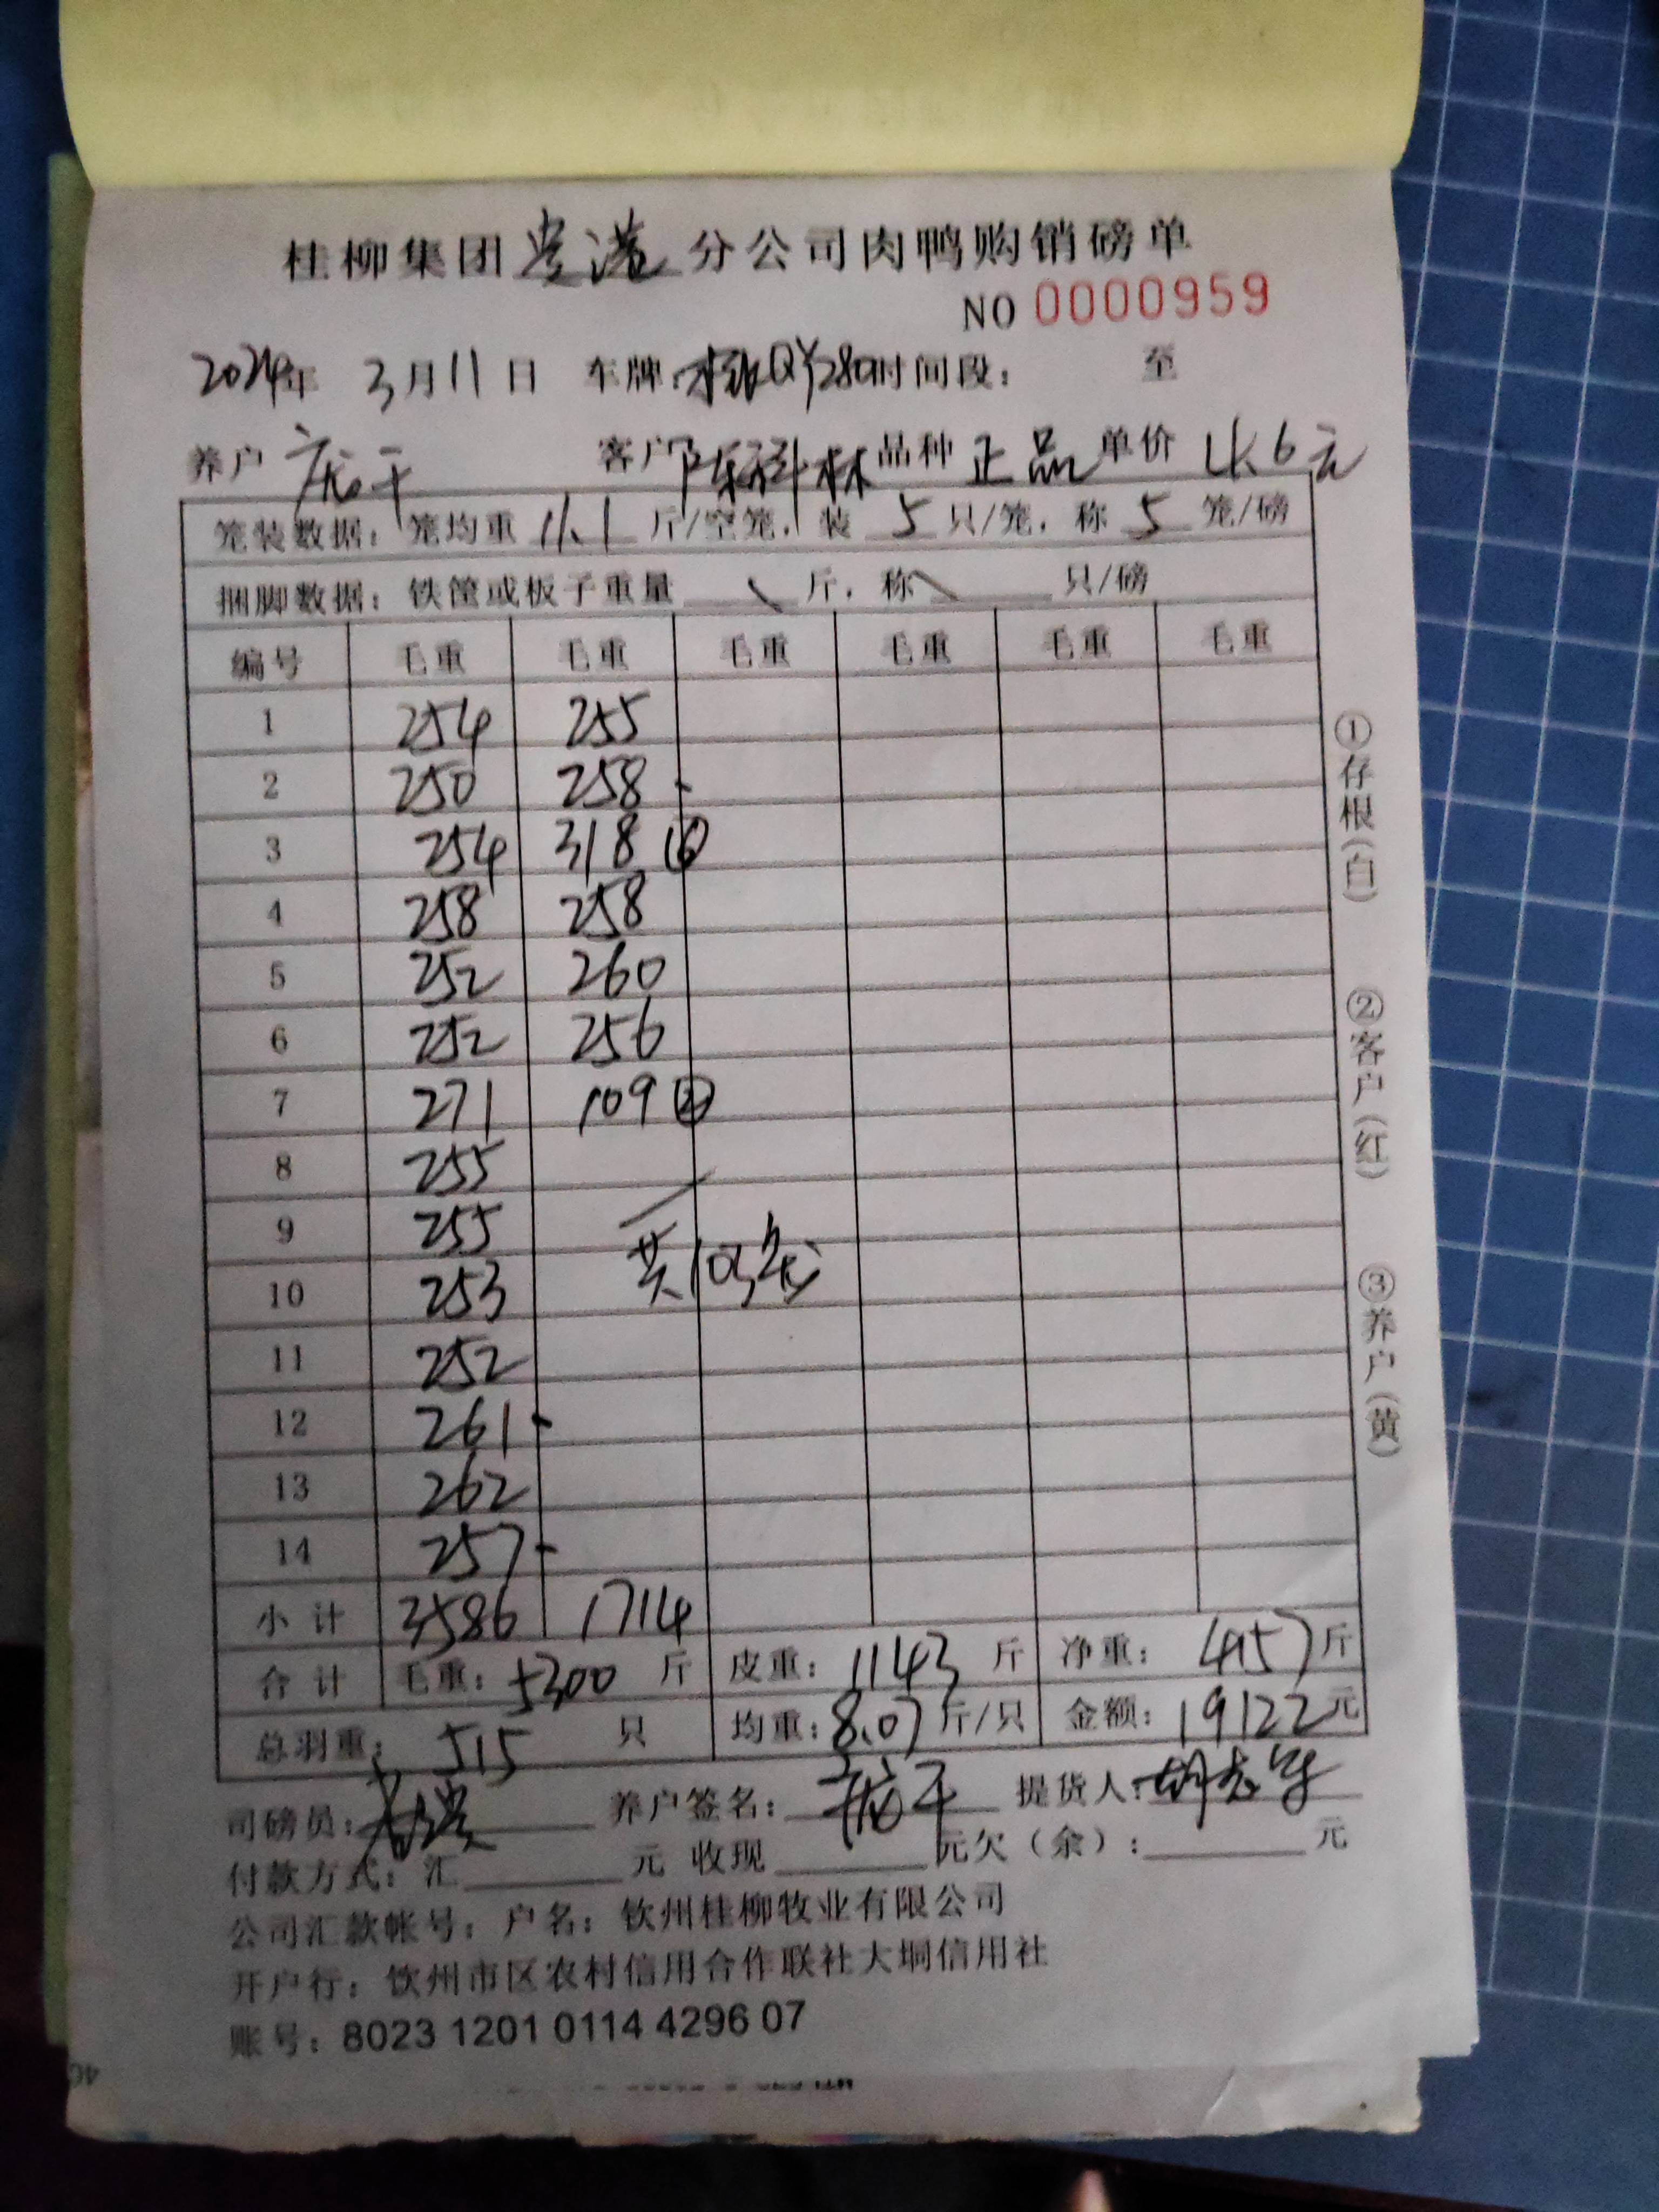 桂柳集团贵港分公司肉鸭购销磅单
NO 0000959
2024年 3月11日 车牌: 时间段: 至
养户 客户 陈科林 品种 正品 单价 4.6元
笼装数据: 笼均重 11.1 斤/空笼, 装 5 只/笼, 称 5 笼/磅
捆脚数据: 铁筐或板子重量 \ 斤, 称 \ 只/磅
编号 毛重 毛重 毛重 毛重 毛重 毛重
1 254 255
2 250 258
3 254 318 ⑥
4 258 258
5 252 260
6 252 256
7 271 109 ②
8 255
9 255
共103笼
10 253
11 252
12 261
13 262
14 257
小计 3586 1714
合计 毛重: 5300 斤 皮重: 1143 斤 净重: 4157斤
总羽重: 515 只 均重: 8.07 斤/只 金额: 19122元
司磅员: 养户签名: 提货人:
付款方式: 汇 元 收现 元欠(余): 元
公司汇款帐号: 户名: 钦州桂柳牧业有限公司
开户行: 钦州市区农村信用合作联社大垌信用社
账号: 8023 1201 0114 4296 07
①存根(白) ②客户(红) ③养户(黄)